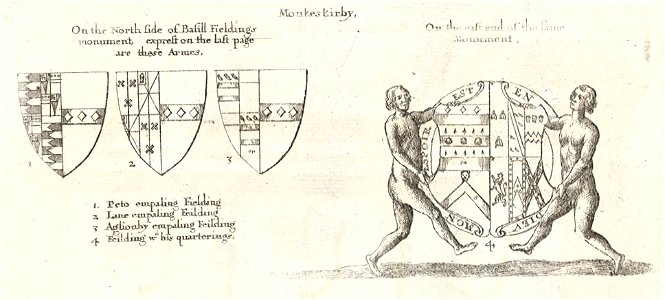 Monkeskirby,
On the North side of Basill Fieldings
monument, exprest on the last page
are these Armes.
On the east end of the same
Monument.
1
2
3
EST EN
ESPOIR
MON DIEV
4
1. Peto empaling Fielding
2 Lane empaling Feilding
3 Aglionby empaling Feilding
4 Feilding wth his quarterings.